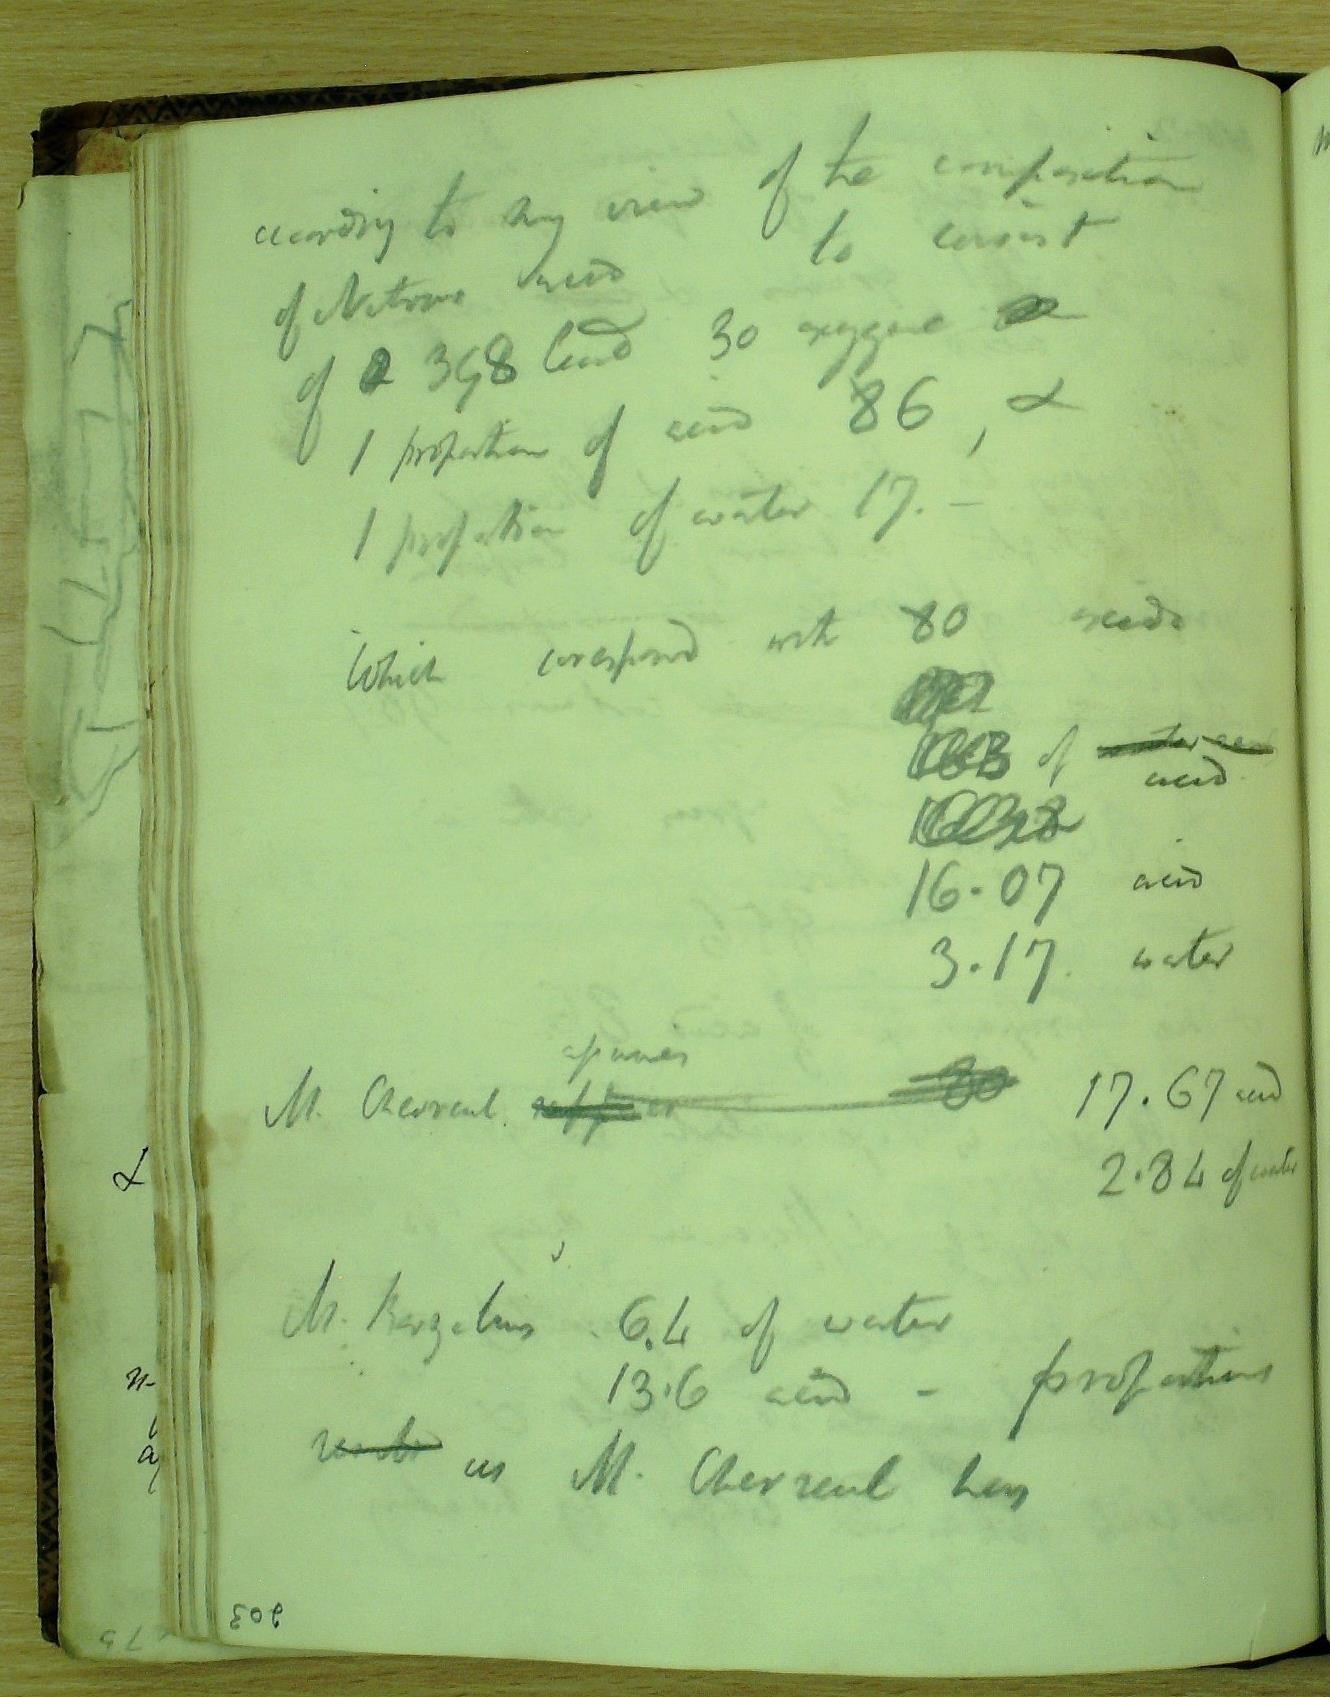 according to my view of the composition
of Nitrous acid to consist
of 398 lead 30 oxygene
1 proportion of acid 86, &
1 proportion of water 17. -
Which correspond with 80
of water acid
acid
16.07 acid
3.17. water
apunes
M. Chevreul 80 17.67 acid
2.84 of water
M. Berzelius 6.4 of water
13.6 acid - proportions
as M. Chevreul has
203